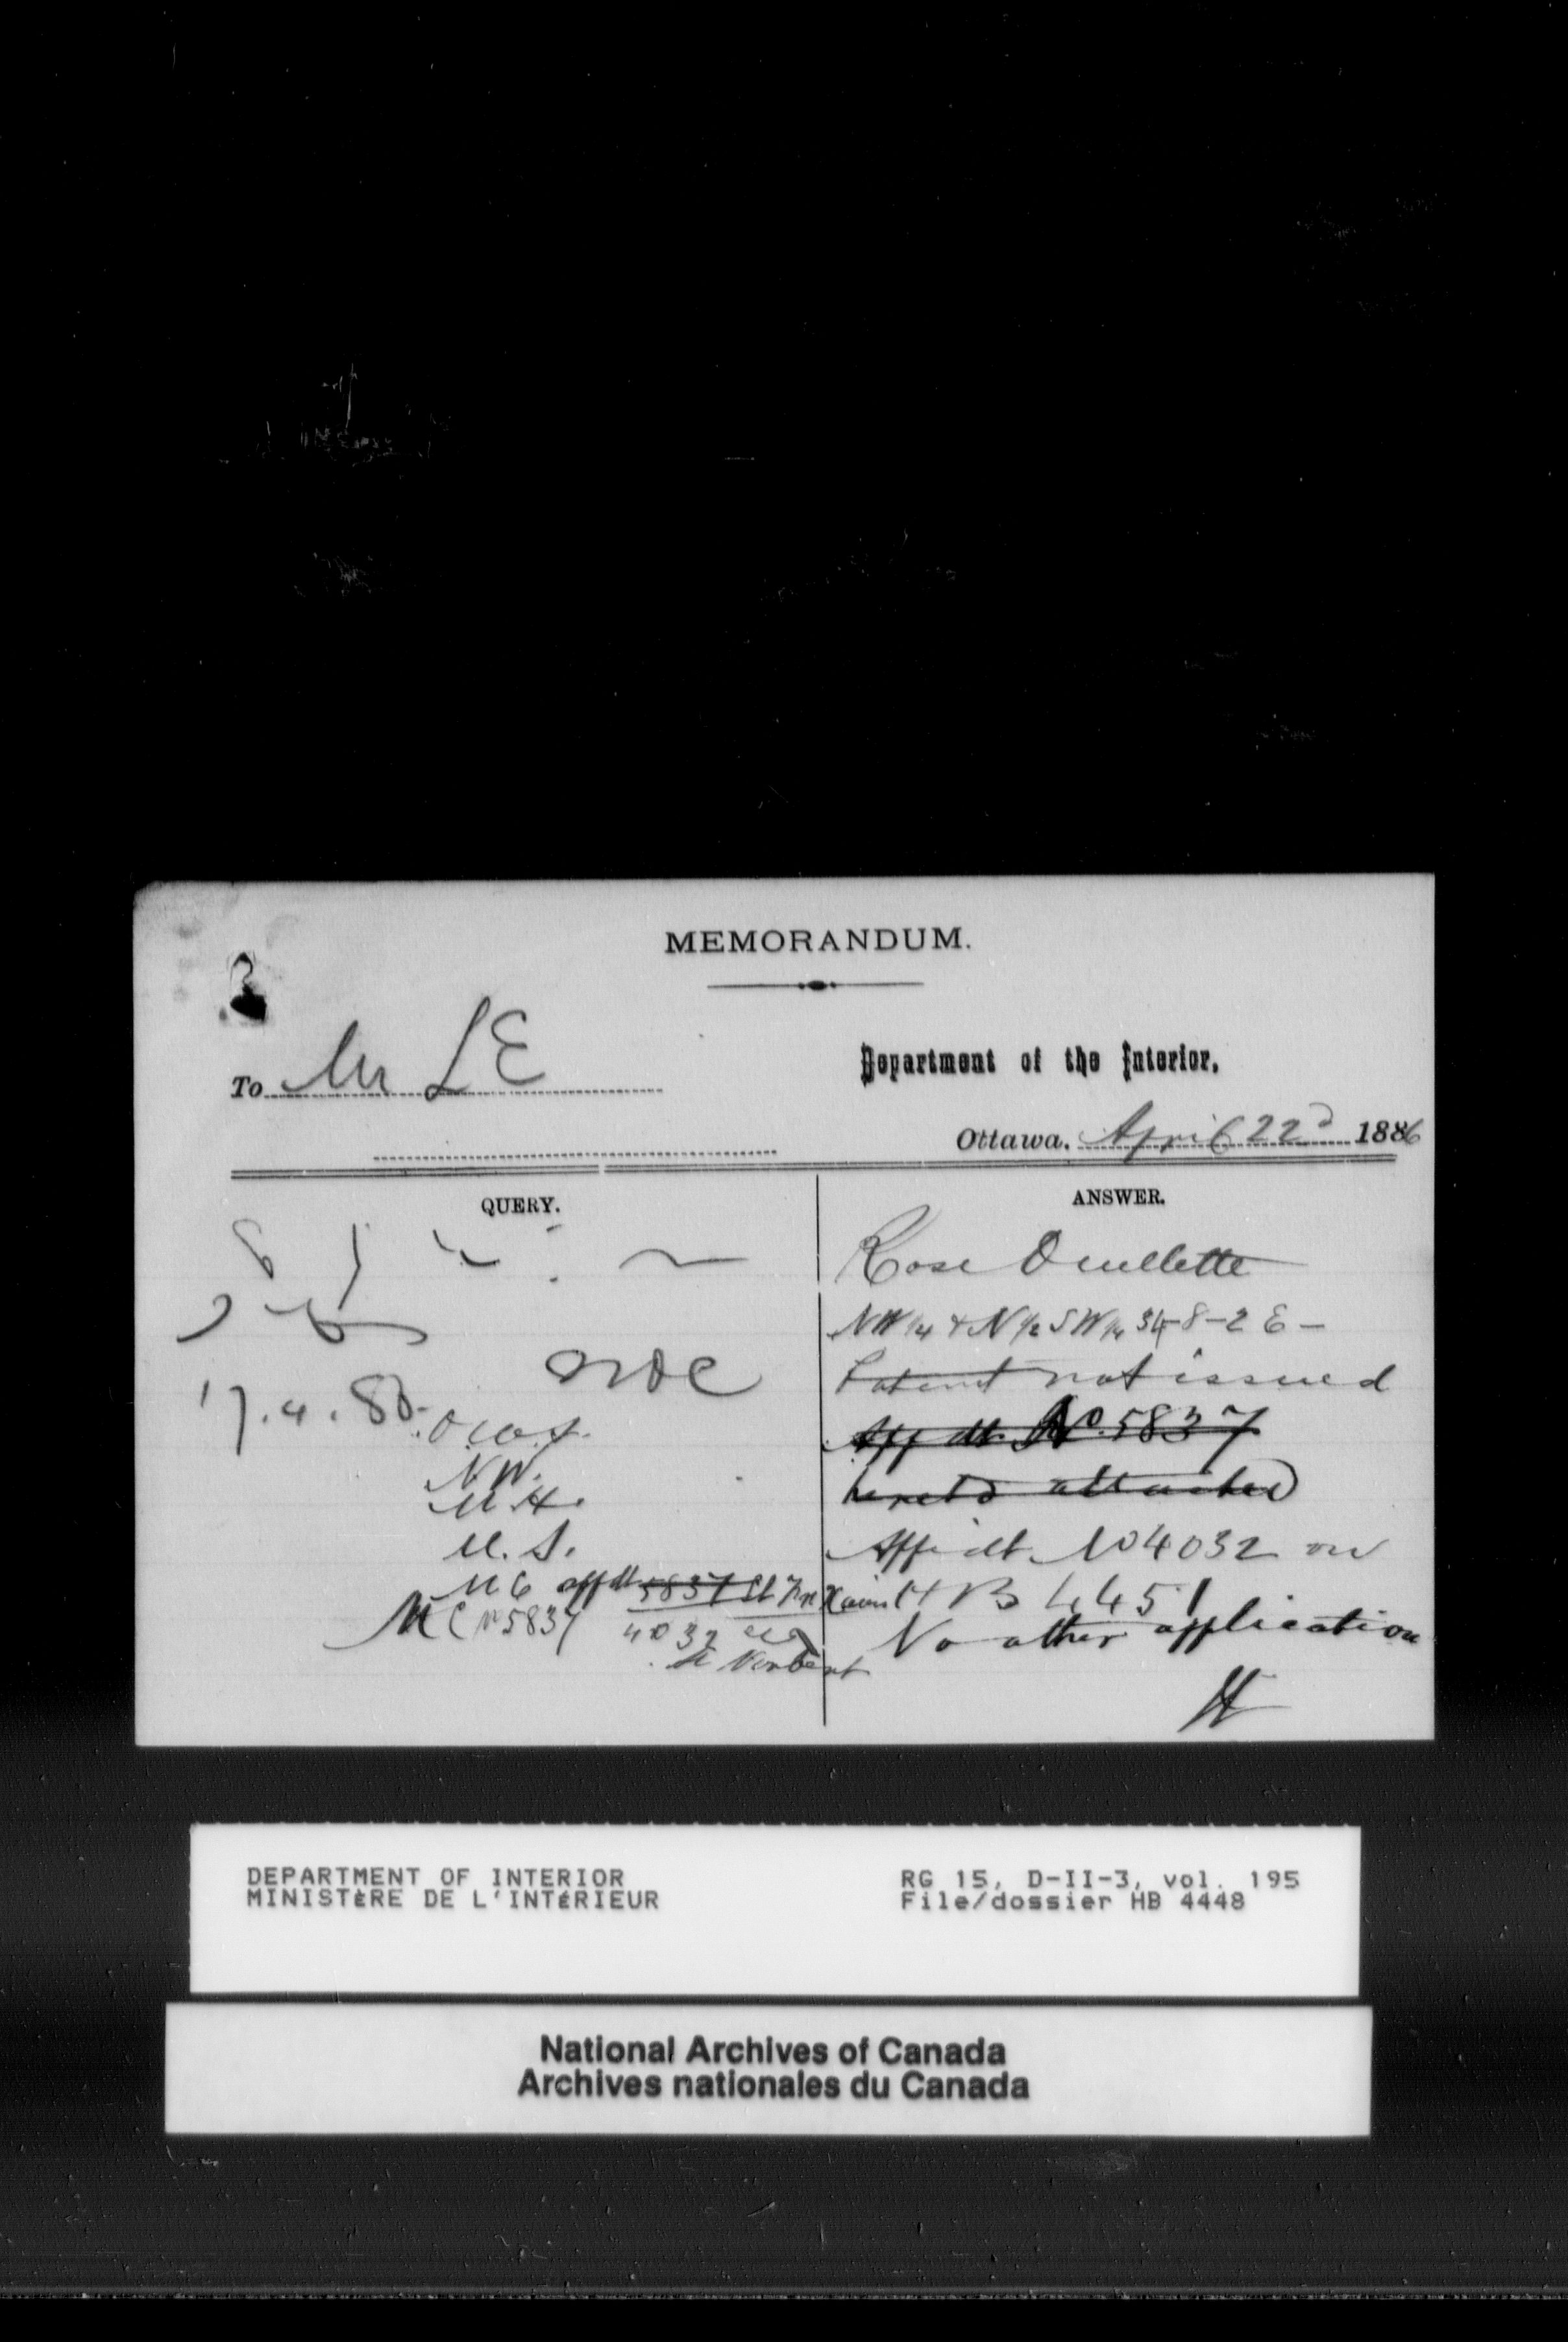 MEMORANDUM.
To Mr L E
Department of the Interior.
Ottawa. April 22d 1886
QUERY.
ANSWER.
17.4.86.
N.W.
M.H.
M.S.
M C affdt 5837 St Frs Xavier
M C No 5837 4032
St Norbert
Rose Ouellette
NW 1/4 & N 1/2 SW 1/4 34-8-2 E -
Patent not issued
Aff dt. No. 5837
hereto attached
Affidt. No 4032 on
H B 4451
No other application
H
DEPARTMENT OF INTERIOR
MINISTÈRE DE L'INTÉRIEUR
RG 15, D-II-3, vol. 195
File/dossier HB 4448
National Archives of Canada
Archives nationales du Canada